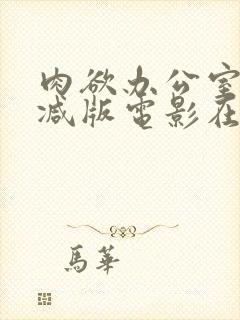 肉欲办公室
减版电影在
馬華